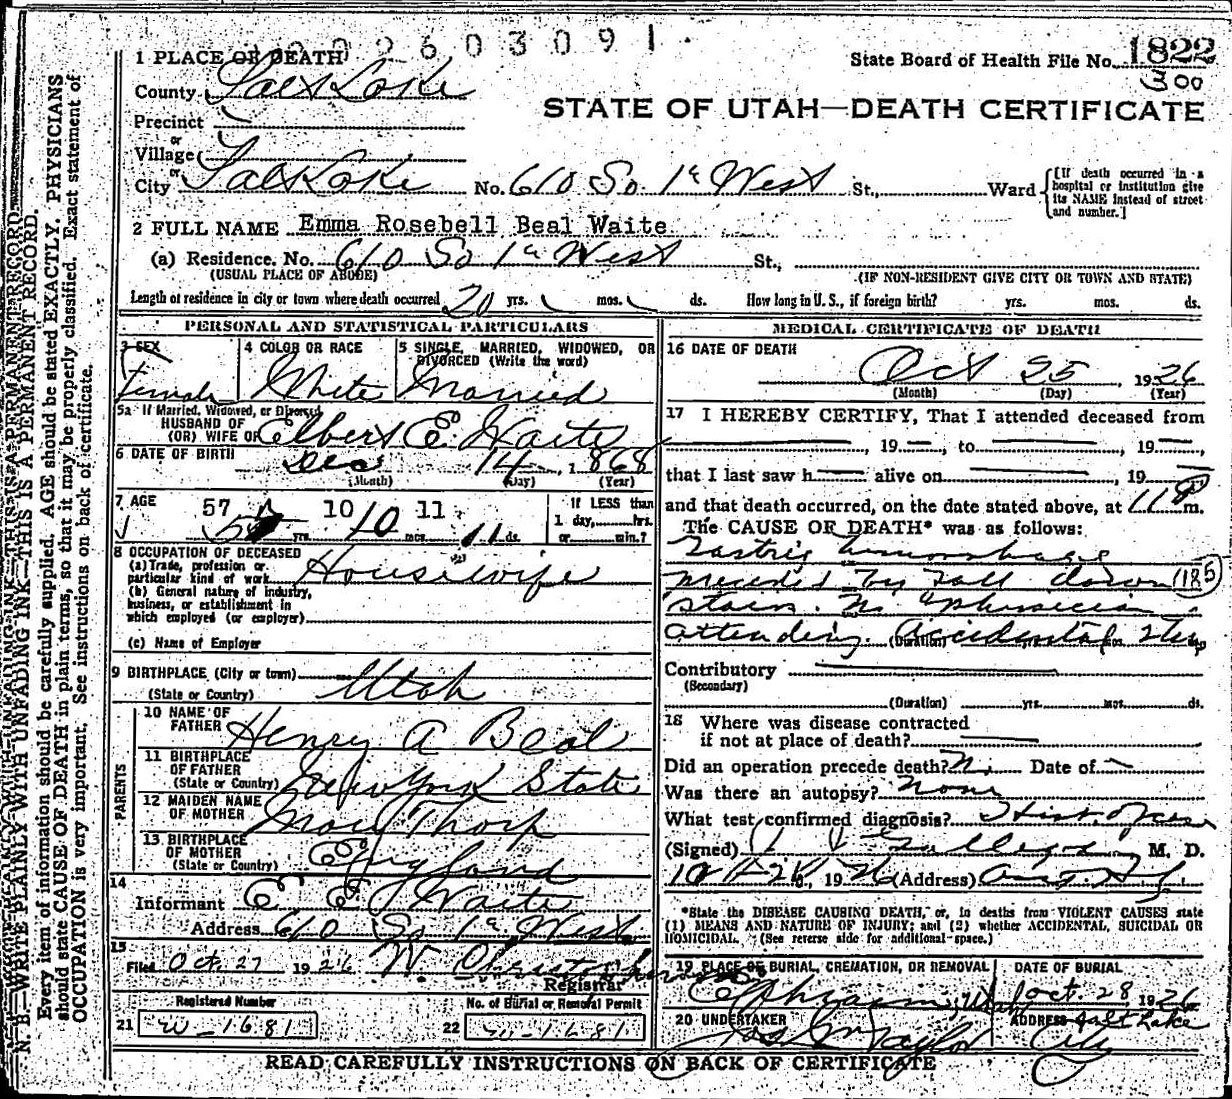 2603091
1 PLACE OF DEATH
State Board of Health File No. 1822
300
County Salt Lake
STATE OF UTAH—DEATH CERTIFICATE
Precinct
or
Village
or
City Salt Lake No. 610 So 1st West St., Ward
[If death occurred in a hospital or institution give its NAME instead of street and number.]
2 FULL NAME Emma Rosebell Beal Waite
(a) Residence. No. 610 So 1st West St.,
(USUAL PLACE OF ABODE) (IF NON-RESIDENT GIVE CITY OR TOWN AND STATE)
Length of residence in city or town where death occurred 20 yrs. mos. ds. How long in U. S., if foreign birth? yrs. mos. ds.
PERSONAL AND STATISTICAL PARTICULARS
3 SEX
Female
4 COLOR OR RACE
White
5 SINGLE, MARRIED, WIDOWED, OR DIVORCED (Write the word)
Married
5a If Married, Widowed, or Divorced
HUSBAND OF
(OR) WIFE OF Elbert E. Waite
6 DATE OF BIRTH Dec 14, 1868
(Month) (Day) (Year)
7 AGE 57 10 11
yrs. 10 mos. 11 ds.
If LESS than
1 day, hrs.
or min.?
8 OCCUPATION OF DECEASED
(a) Trade, profession or
particular kind of work Housewife
(b) General nature of industry,
business, or establishment in
which employed (or employer)
(c) Name of Employer
9 BIRTHPLACE (City or town)
(State or Country) Utah
PARENTS
10 NAME OF
FATHER Henry A Beal
11 BIRTHPLACE
OF FATHER
(State or Country) New York State
12 MAIDEN NAME
OF MOTHER Mary Thorp
13 BIRTHPLACE
OF MOTHER
(State or Country) England
14
Informant E E Waite
Address 610 So 1st West
15
Filed Oct. 27 1926 W. Christopherson
Registrar
Registered Number No. of Burial or Removal Permit
21 w-1681 22 w-1681
MEDICAL CERTIFICATE OF DEATH
16 DATE OF DEATH
Oct 25, 1926
(Month) (Day) (Year)
17 I HEREBY CERTIFY, That I attended deceased from
, 19 , to , 19
that I last saw h alive on , 19
and that death occurred, on the date stated above, at 11 P m.
The CAUSE OF DEATH* was as follows:
Gastric hemorrhage
preceded by fall down (185)
stairs. No physician
attending. Accidental
(Duration)
Contributory
(Secondary)
(Duration) yrs. mos. ds.
18 Where was disease contracted
if not at place of death?
Did an operation precede death? No Date of
Was there an autopsy? None
What test confirmed diagnosis? Hist of case
(Signed) M. D.
, 1926 (Address)
*State the DISEASE CAUSING DEATH, or, in deaths from VIOLENT CAUSES state
(1) MEANS AND NATURE OF INJURY; and (2) whether ACCIDENTAL, SUICIDAL OR
HOMICIDAL. (See reverse side for additional space.)
19 PLACE OF BURIAL, CREMATION, OR REMOVAL
Ephraim, Utah
DATE OF BURIAL
Oct 28 1926
20 UNDERTAKER
Jos Wm Taylor
ADDRESS Salt Lake
City
READ CAREFULLY INSTRUCTIONS ON BACK OF CERTIFICATE
N. B.—WRITE PLAINLY WITH UNFADING INK—THIS IS A PERMANENT RECORD.
Every item of information should be carefully supplied. AGE should be stated EXACTLY. PHYSICIANS
should state CAUSE OF DEATH in plain terms, so that it may be properly classified. Exact statement of
OCCUPATION is very important. See instructions on back of certificate.